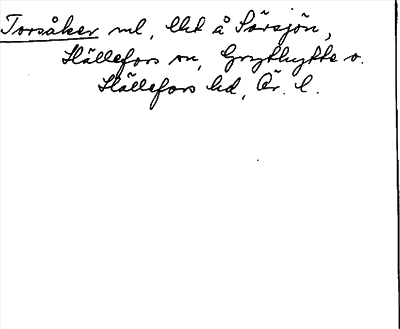 Torsåker ml, lht å Sörsjön,
Hällefors sn, Grythytte o.
Hällefors hd, Ör. l.